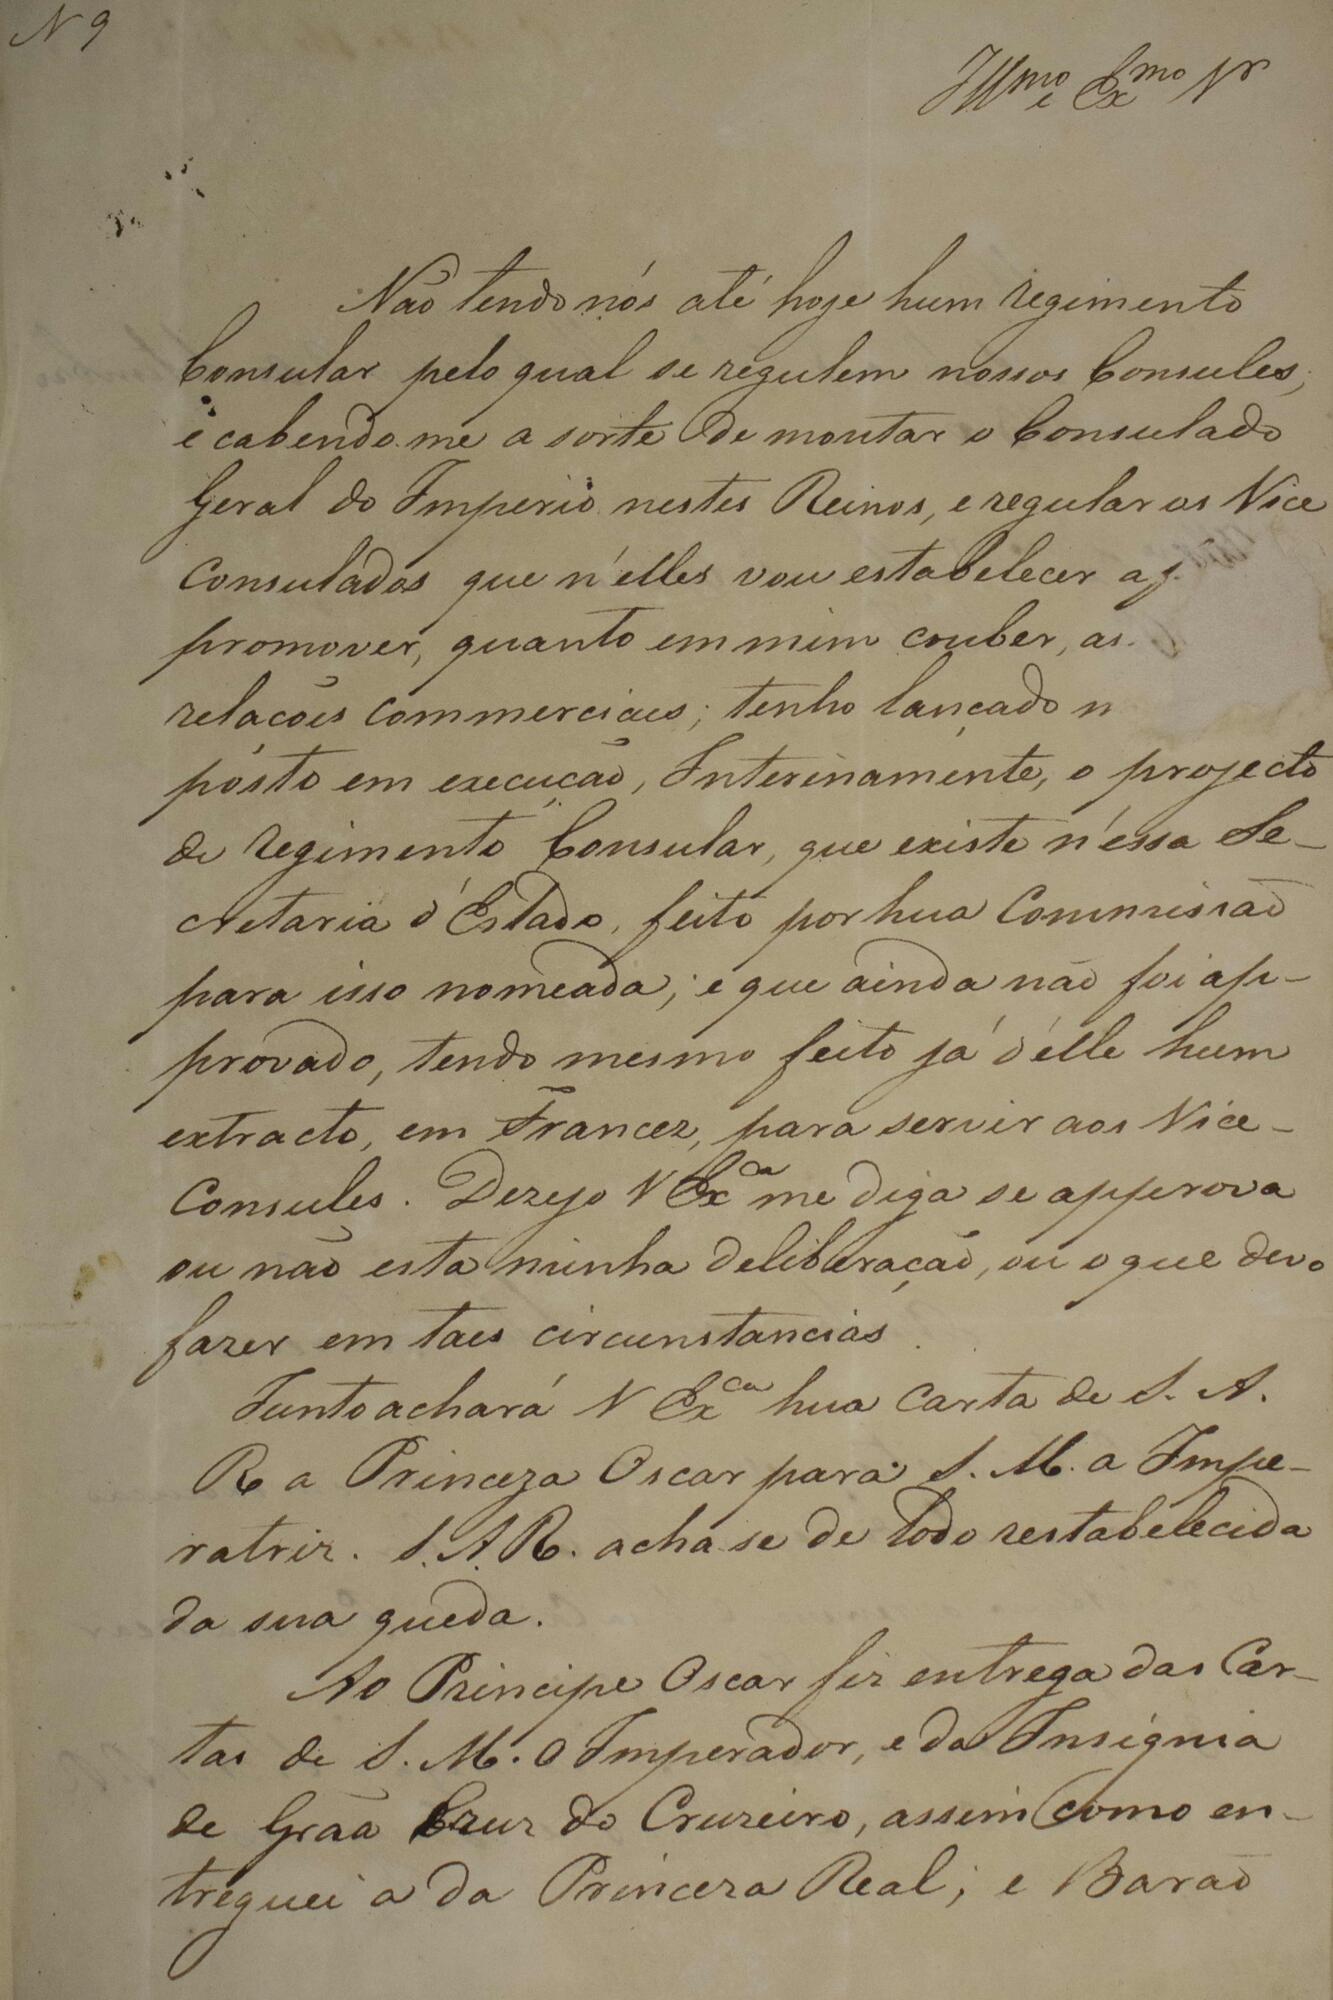 N 9
Illmo e Exmo Sr
Não tendo nós até hoje hum regimento
Consular pelo qual se regulem nossos Consules,
e cabendo me a sorte de montar o Consulado
Geral do Imperio nestes Reinos, e regular os Vice
Consulados que n'elles vou estabelecer
promover, quanto em mim couber, as
relações commerciaes; tenho lançado
pósto em execução, Interinamente, o projecto
de regimento Consular, que existe n'essa Se-
cretaria d'Estado, feito por hua Commissão
para isso nomeada; e que ainda não foi ap-
provado, tendo mesmo feito já d'elle hum
extracto, em Francez, para servir aos Vice-
Consules. Dezejo V Exca me diga se approva
ou não esta minha deliberação, ou o que devo
fazer em taes circunstancias.
Junto achará V Exca hua Carta de S. A.
R a Princeza Oscar para S. M. a Impe-
ratriz. S. A. R. acha se de todo restabelecida
da sua queda.
Ao Principe Oscar fiz entrega das Car-
tas de S. M. O Imperador, e da Insignia
de Grãa Cruz do Cruzeiro, assim como en-
treguei a da Princeza Real; e Barão